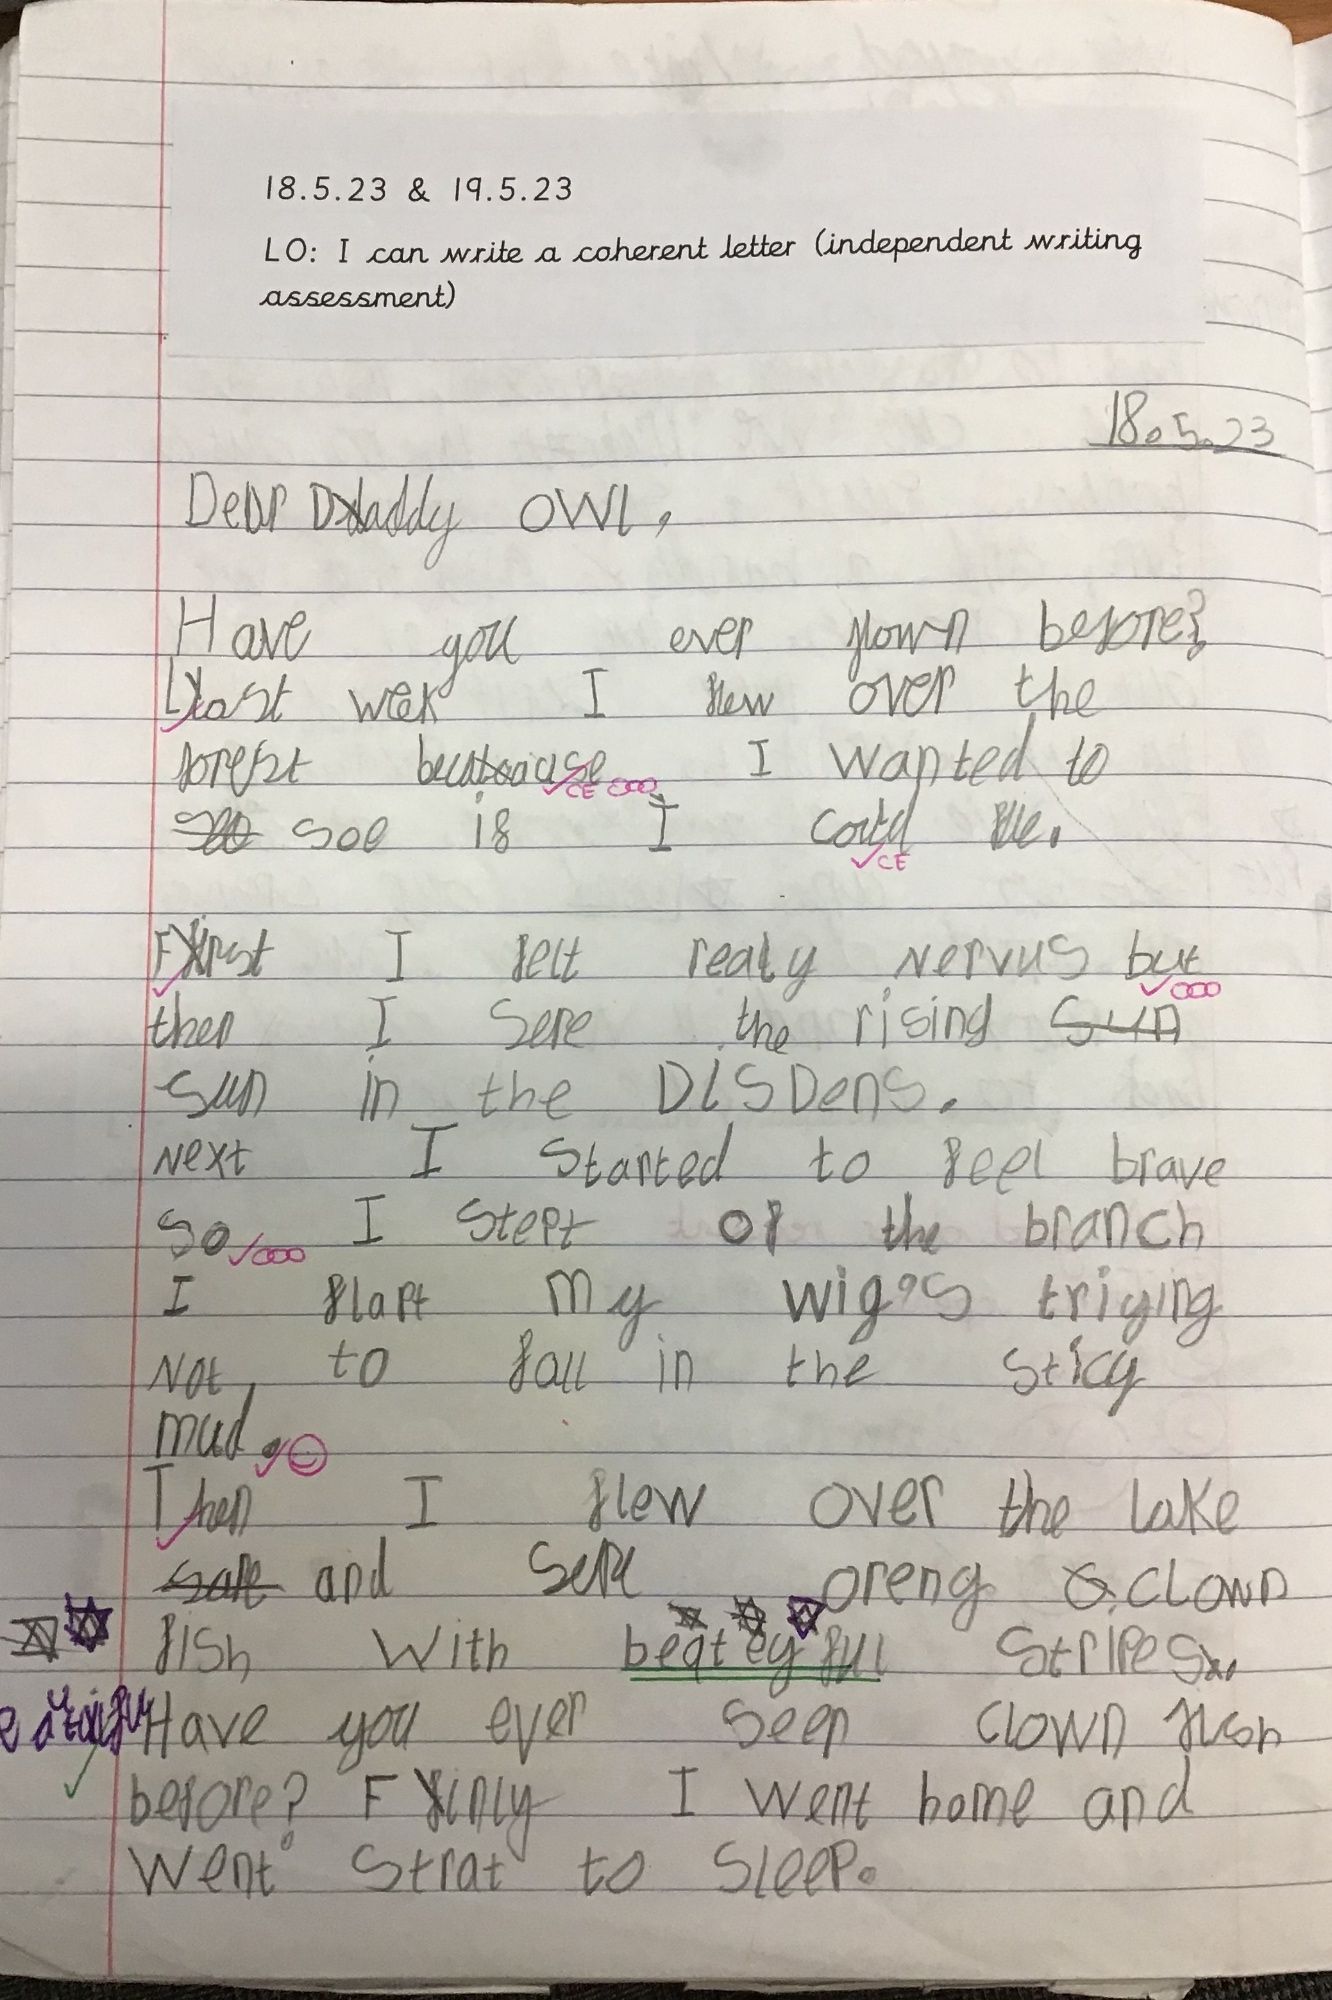 18.5.23 & 19.5.23
LO: I can write a coherent letter (independent writing
assessment)
18.5.23
Dear Daddy OWl,
Have you ever flown before?
Last wek I flew over the
forest because I wanted to
see see if I could flle.
First I felt realy nervus but
then I sere the rising sun
sun in the DISDens.
Next I started to feel brave
so I stept of the branch
I flapt my wigs triying
Not to fall in the sticy
mud.
Then I flew over the lake
sare and sere oreng clown
fish with beateyful stripes.
Have you ever seen clown fish
before? Finly I went home and
went strat to sleep.